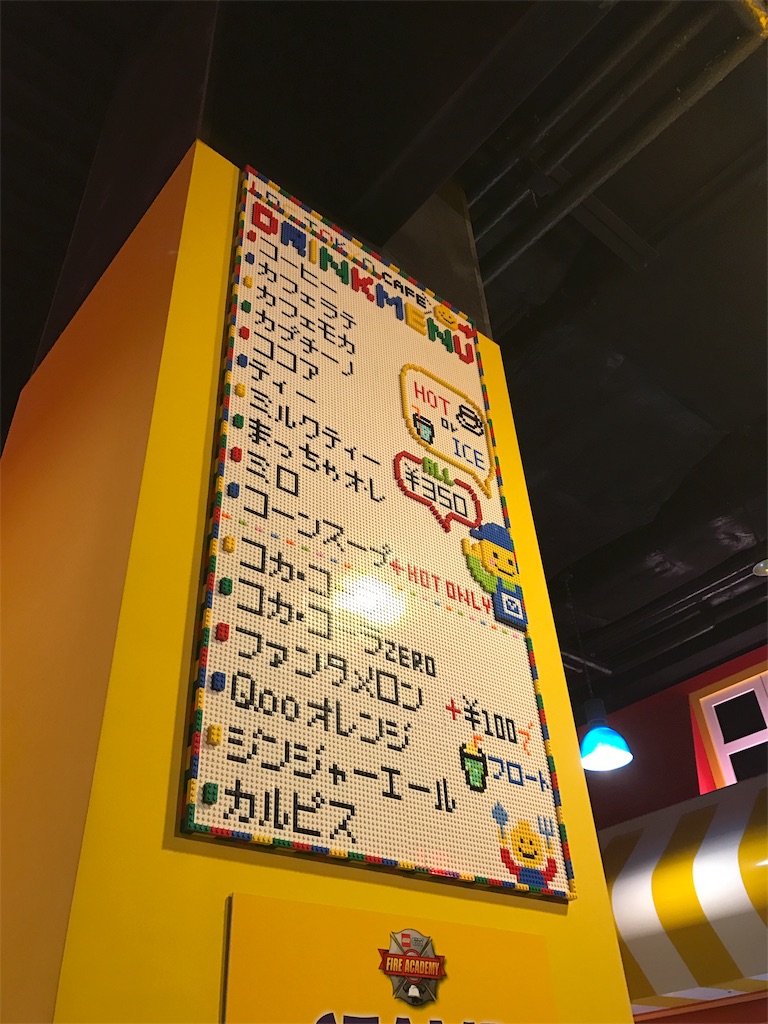 CAFE
DRINK MENU
コーヒー
カフェラテ
カフェモカ
カプチーノ
ココア
ティー
ミルクティー
まっちゃオレ
ミロ
コーンスープ+HOT ONLY
HOT
or
ICE
ALL
¥350
コカ・コ
コカ・コ ラZERO
ファンタメロン
Qooオレンジ
ジンジャーエール
カルピス
+¥100で
フロート
FIRE ACADEMY